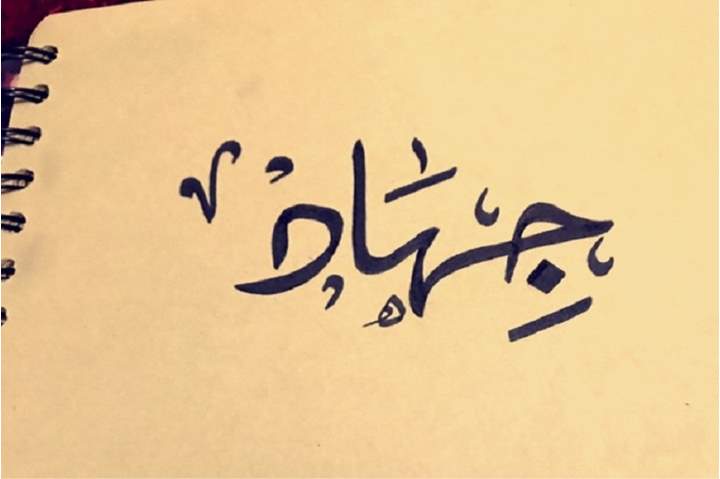 جِهَاد